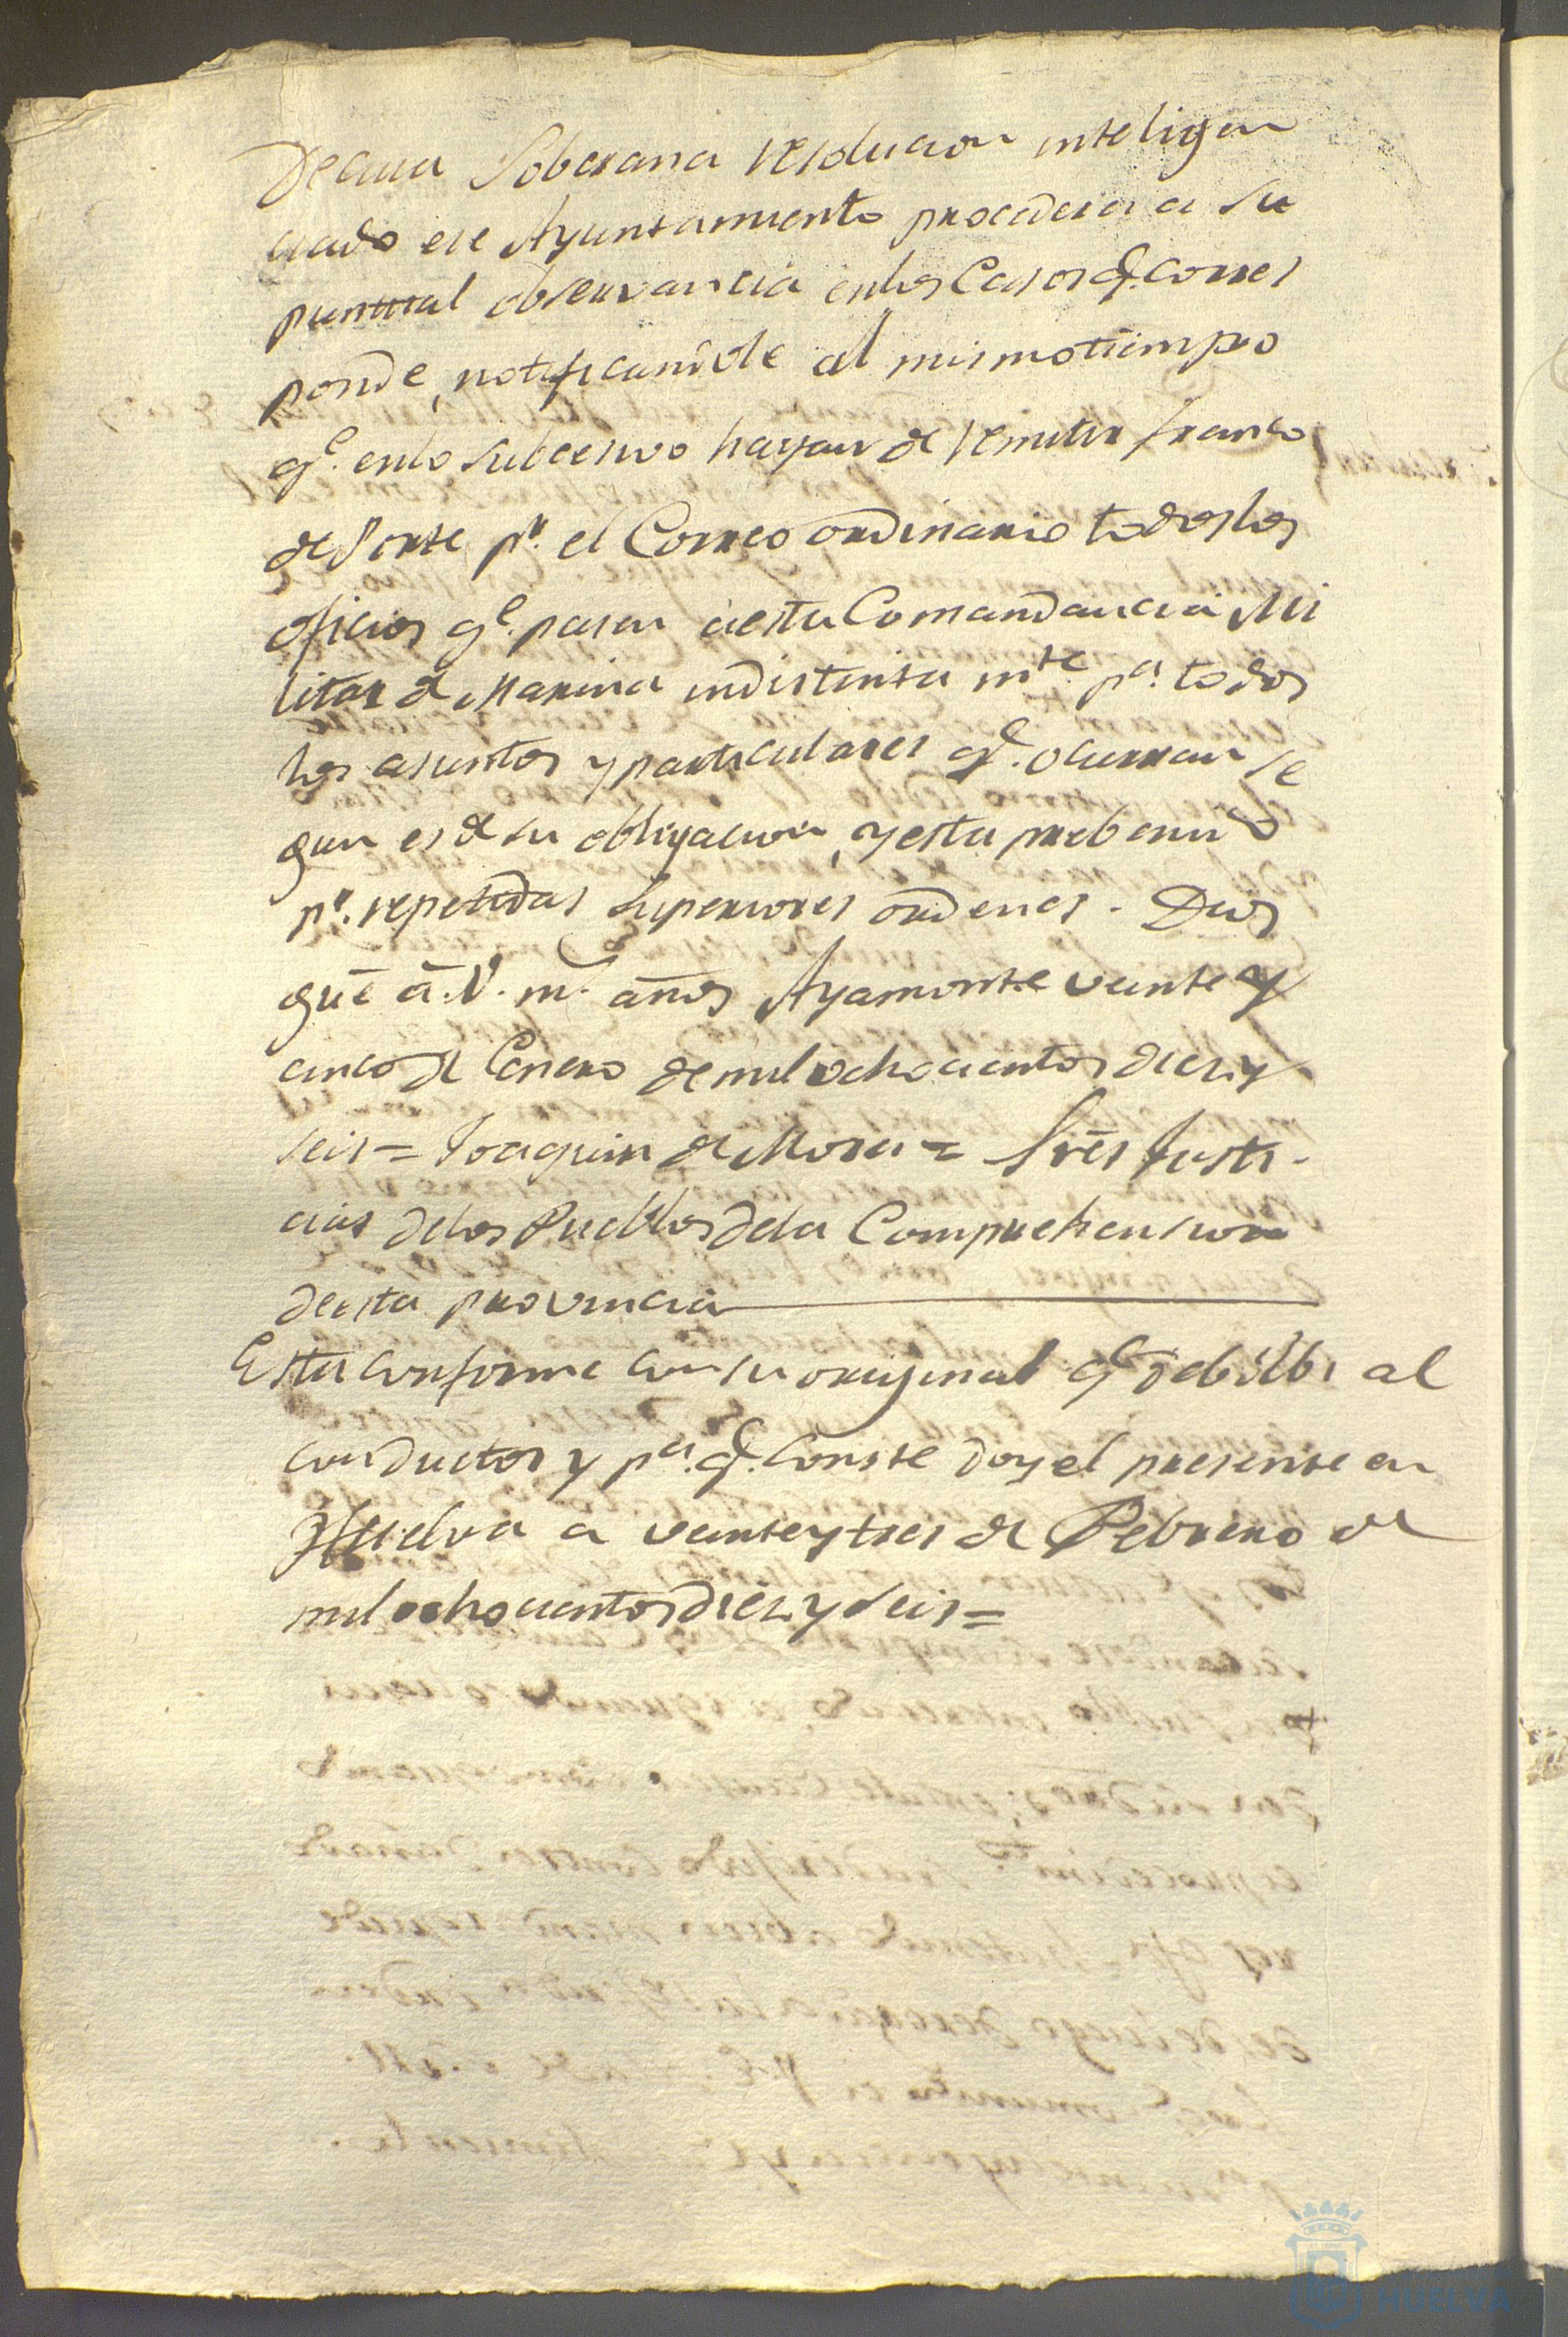 De cuia Soberana resolucion inteligen
ciado ese Ayuntamiento procederá a su
puntual observancia enlos Casos q.e corres
ponde, notificandole al mismo tiempo
q.e enlo subcesivo hayan de remitir franco
de Porte p.r el Correo ordinario todos los
oficios q.e pasen á esta Comandancia Mi
litar de Marina indistinta m.te p.a todos
los asuntos y particulares q.e ocurran se
gun es de su obligacion, y esta prebenido
p.r repetidas Superiores ordenes. Dios
gue á V. m.s años Ayamonte veinte y
cinco de Enero de mil ochocientos diez y
seis = Joaquin de Mora = Sres Justi-
cias delos Pueblos dela Comprehension
de esta provincia
Esta conforme con su original q.e debolbi al
conductor y p.a q.e Conste doy el presente en
Huelva a veinte y tres de Febrero de
mil ochocientos diez y seis =
HUELVA